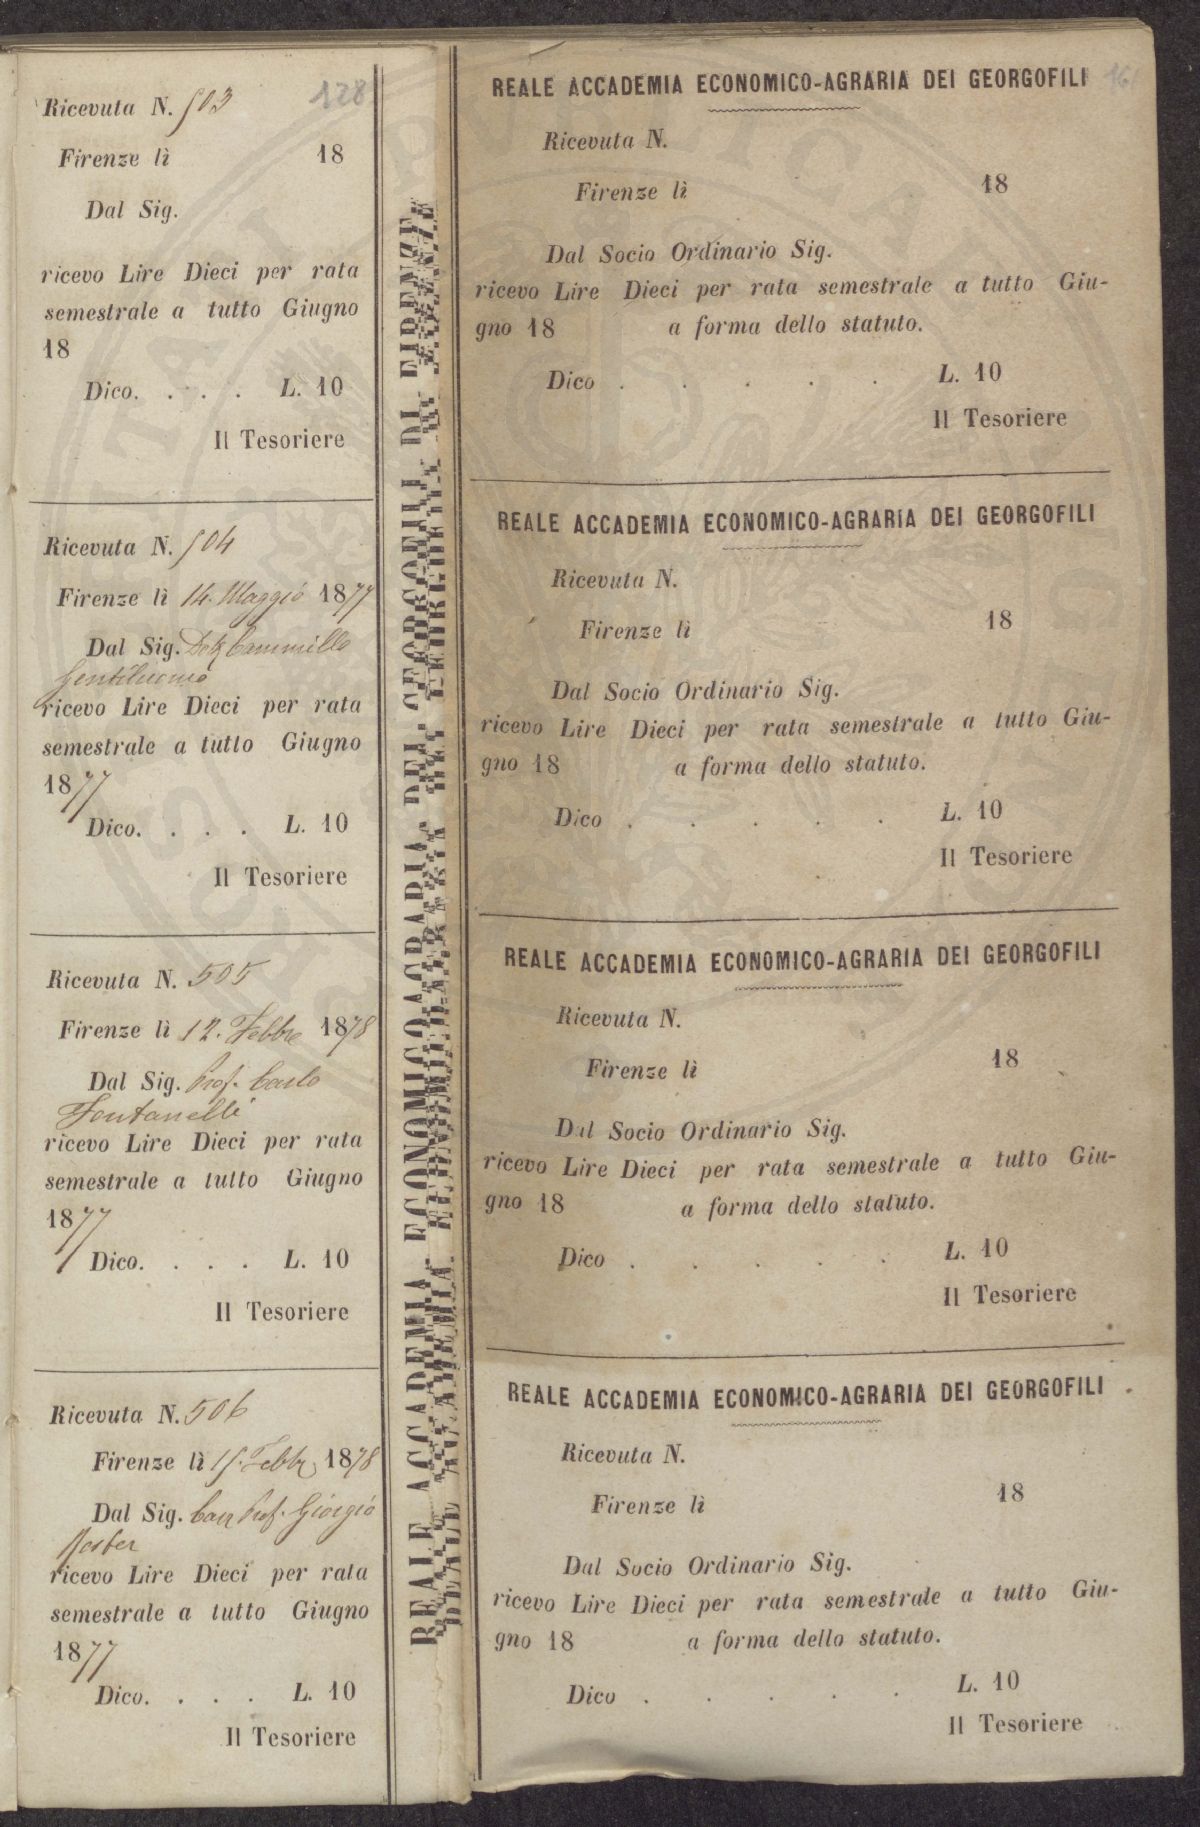 128
Ricevuta N. 503
Firenze lì 18
Dal Sig.
ricevo Lire Dieci per rata
semestrale a tutto Giugno
18
Dico. . . . L. 10
Il Tesoriere
Ricevuta N. 504
Firenze lì 14. Maggio 1877
Dal Sig. Dott Cammillo
Gentiluomo
ricevo Lire Dieci per rata
semestrale a tutto Giugno
1877
Dico. . . . L. 10
Il Tesoriere
Ricevuta N. 505
Firenze lì 12. Febbre 1878
Dal Sig. Prof. Carlo
Fontanelli
ricevo Lire Dieci per rata
semestrale a tutto Giugno
1877
Dico. . . . L. 10
Il Tesoriere
Ricevuta N. 506
Firenze lì 15. Febbr. 1878
Dal Sig. Cav Prof. Giorgio
Roster
ricevo Lire Dieci per rata
semestrale a tutto Giugno
1877
Dico. . . . L. 10
Il Tesoriere
REALE ACCADEMIA ECONOMICO-AGRARIA DEI GEORGOFILI DI FIRENZE
REALE ACCADEMIA ECONOMICO-AGRARIA DEI GEORGOFILI
Ricevuta N.
Firenze lì 18
Dal Socio Ordinario Sig.
ricevo Lire Dieci per rata semestrale a tutto Giu-
gno 18 a forma dello statuto.
Dico . . . . . L. 10
Il Tesoriere
REALE ACCADEMIA ECONOMICO-AGRARIA DEI GEORGOFILI
Ricevuta N.
Firenze lì 18
Dal Socio Ordinario Sig.
ricevo Lire Dieci per rata semestrale a tutto Giu-
gno 18 a forma dello statuto.
Dico . . . . . L. 10
Il Tesoriere
REALE ACCADEMIA ECONOMICO-AGRARIA DEI GEORGOFILI
Ricevuta N.
Firenze lì 18
Dal Socio Ordinario Sig.
ricevo Lire Dieci per rata semestrale a tutto Giu-
gno 18 a forma dello statuto.
Dico . . . . . L. 10
Il Tesoriere
REALE ACCADEMIA ECONOMICO-AGRARIA DEI GEORGOFILI
Ricevuta N.
Firenze lì 18
Dal Socio Ordinario Sig.
ricevo Lire Dieci per rata semestrale a tutto Giu-
gno 18 a forma dello statuto.
Dico . . . . . L. 10
Il Tesoriere